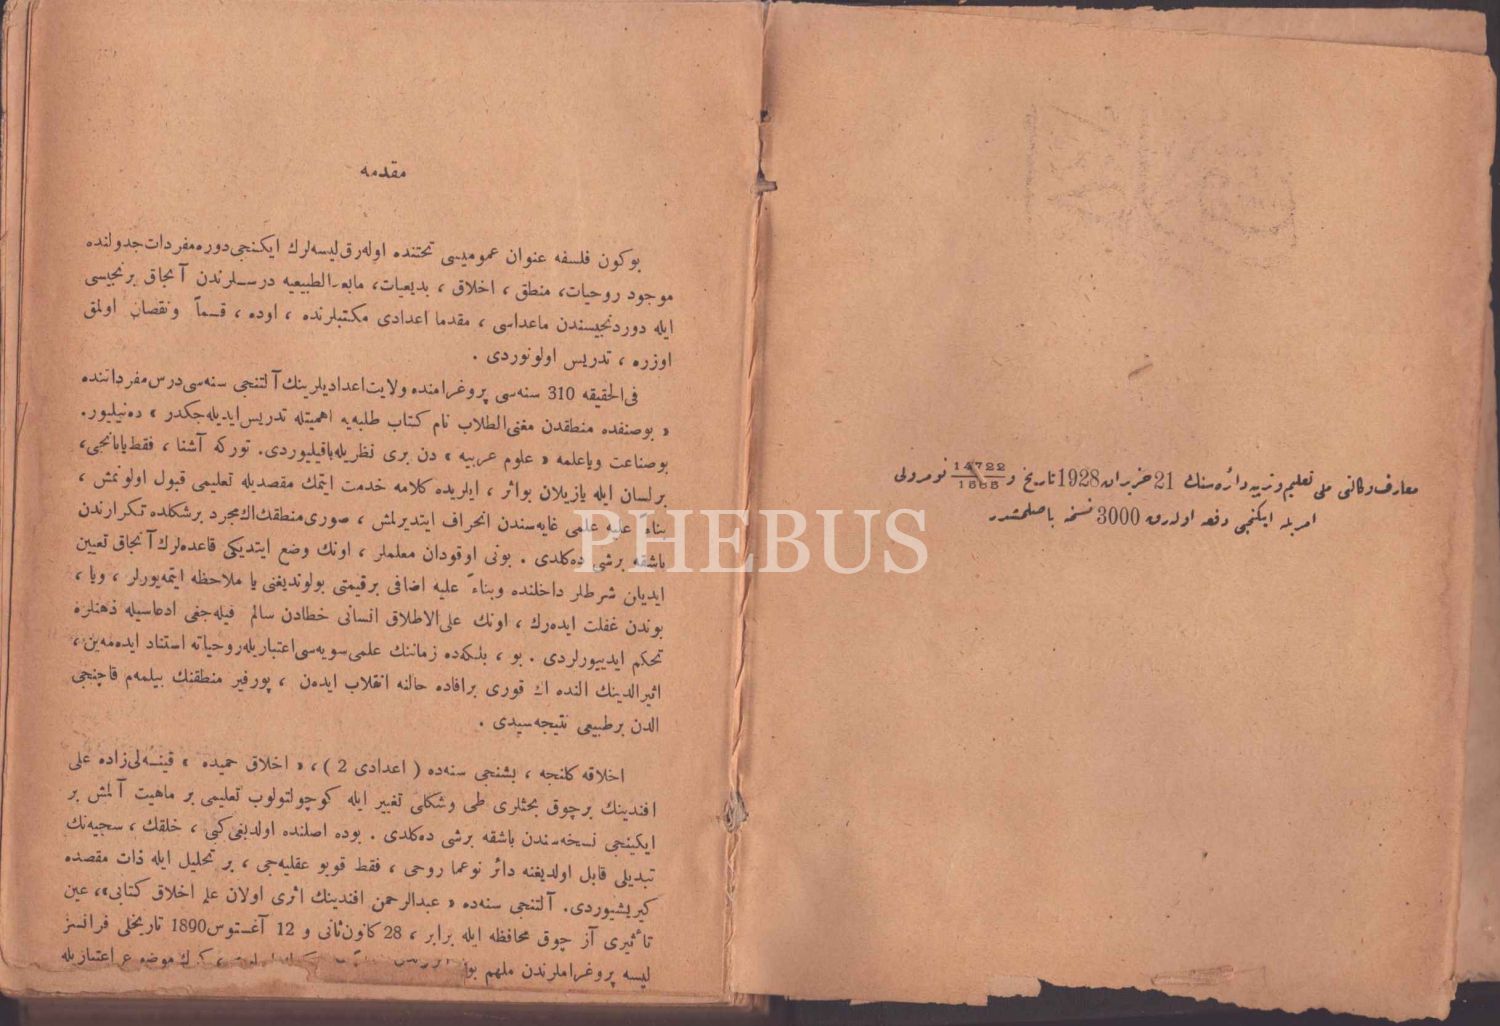 معارف وكالتى ملى تعليم و تربيه دائره سنك 21 حزيران 1928 تاريخ و 14722/1888 نومرولى
امريله ايكنجى دفعه اوله رق 3000 نسخه باصلمشدر
مقدمه
بوكون فلسفه عنوان عموميسى تحتنده اوله رق ليسه لرك ايكنجى دوره مفردات جدولنده
موجود روحيات، منطق ، اخلاق ، بديعيات، مابعدالطبيعيه درسلرندن آنجاق برنجيسى
ايله دوردنجيسندن ماعداسى ، مقدما اعدادى مكتبلرنده ، اوده ، قسماً ونقصان اولمق
اوزره ، تدريس اولونوردى .
فى الحقيقه 310 سنه سى پروغرامنده ولايت اعداديلرينك آلتنجى سنه سى درس مفرداتنده
« بوصنفده منطقدن مغنى الطلاب نام كتاب طلبه يه اهميتله تدريس ايديله جكدر » ده نيليور.
بوصناعت وياعلمه « علوم عربيه » دن برى نظريله باقيليوردى. توركه آشنا ، فقط يابانجى،
برلسان ايله يازيلان بواثر ، ايلريده كلامه خدمت ايتمك مقصديله تعليمى قبول اولونمش ،
بناءً عليه علمى غايه سندن انحراف ايتديرلمش ، صورى منطقك اك مجرد برشكلده تكرارندن
باشقه برشى ده كلدى . بونى اوقودان معلملر ، اونك وضع ايتديكى قاعده لرك آنجاق تعيين
ايديان شرطلر داخلنده وبناءً عليه اضافى برقيمتى بولونديغنى يا ملاحظه ايتمه يورلر ، ويا ،
بوندن غفلت ايده رك ، اونك على الاطلاق انسانى خطادن سالم قيله جغى ادعاسيله ذهنلره
تحكم ايدييورلردى . بو ، بلكه ده زماننك علمى سويه سى اعتباريله روحياته استناد ايده مه ين ،
اثيرالدينك النده اك قورى برافاده حالنه انقلاب ايدن ، پورفير منطقنك بيلمه م قاچنجى
الدن برطبيعى نتيجه سيدى .
اخلاقه كلنجه ، بشنجى سنه ده ( اعدادى 2 ) ، « اخلاق حميده » قينه لى زاده على
افندينك برچوق بحثلرى طى وشكلى تغيير ايله كوچولتولوب تعليمى بر ماهيت آلمش بر
ايكينجى نسخه سندن باشقه برشى ده كلدى . بوده اصلنده اولديغى كبى ، خلقك ، سجيه نك
تبديلى قابل اولديغنه دائر نوعما روحى ، فقط قويو عقليه جى ، بر تحليل ايله ذات مقصده
كيريشيوردى. آلتنجى سنه ده « عبدالرحمن افندينك اثرى اولان علم اخلاق كتابى»، عين
تأثيرى آز چوق محافظه ايله برابر ، 28 كانون ثانى و 12 آغستوس 1890 تاريخلى فرانسز
ليسه پروغراملرندن ملهم
PHEBUS